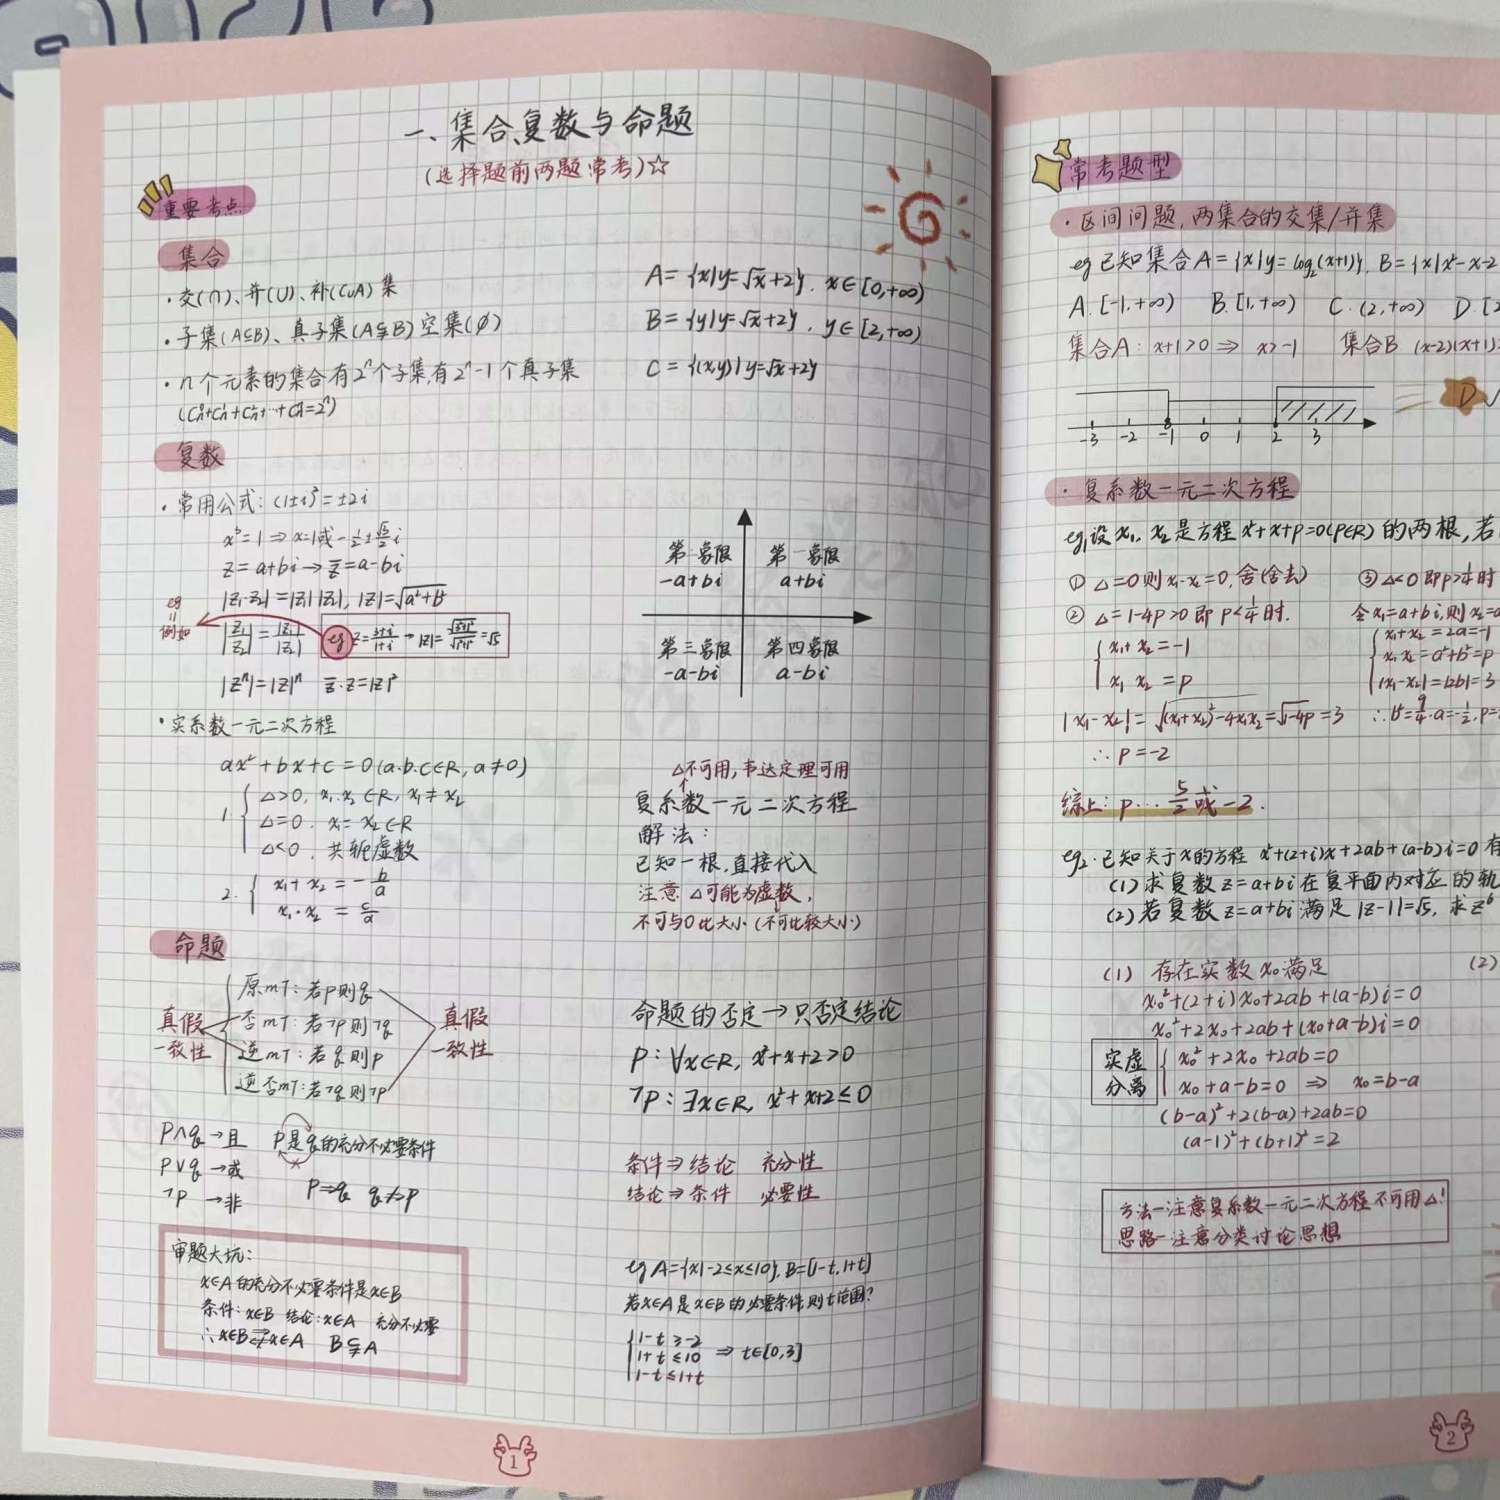 一、集合、复数与命题
(选择题前两题常考)☆
重要考点
集合
·交(∩)、并(∪)、补(CuA)集
·子集(A⊆B)、真子集(A⫋B)空集(∅)
·n个元素的集合有2ⁿ个子集,有2ⁿ-1个真子集
(Cn⁰+Cn¹+Cn²+…+Cnⁿ=2ⁿ)
A={x|y=√x+2}, x∈[0,+∞)
B={y|y=√x+2}, y∈[2,+∞)
C={(x,y)|y=√x+2}
复数
·常用公式:(1±i)²=±2i
x³=1⇒x=1或-1/2±√3/2 i
z=a+bi→z̄=a-bi
|z₁·z₂|=|z₁||z₂|, |z|=√a²+b²
eg
=
例如
|z₁/z₂|=|z₁|/|z₂|
eg z=3+i/1+i → |z|=√3²+1²/√1²+1²=√5
|zⁿ|=|z|ⁿ z̄·z=|z|²
第二象限
-a+bi
第一象限
a+bi
第三象限
-a-bi
第四象限
a-bi
·实系数一元二次方程
ax²+bx+c=0(a.b.c∈R, a≠0)
1 { Δ>0, x₁.x₂∈R, x₁≠x₂
Δ=0, x₁=x₂∈R
Δ<0, 共轭虚数
2. { x₁+x₂=-b/a
x₁·x₂=c/a
Δ不可用,韦达定理可用
↑
复系数一元二次方程
解法:
已知一根,直接代入
注意 Δ可能为虚数,
不可与0比大小(不可比较大小)
命题
真假
一致性
原mT:若p则q
否mT:若¬p则¬q
逆mT:若q则p
逆否mT:若¬q则¬p
真假
一致性
命题的否定→只否定结论
P:∀x∈R, x²+x+2>0
¬P:∃x∈R, x²+x+2≤0
P∧q→且
P∨q→或
¬P→非
P是q的充分不必要条件
P⇒q q⇏P
条件⇒结论 充分性
结论⇒条件 必要性
审题大坑:
x∈A的充分不必要条件是x∈B
条件:x∈B 结论:x∈A 充分不必要
∴x∈B⇄x∈A B⫋A
eg A={x|-2≤x≤10}, B=[1-t,1+t]
若x∈A是x∈B的必要条件则t范围?
{ 1-t≥-2
1+t≤10 ⇒ t∈[0,3]
1-t≤1+t
1
常考题型
·区间问题,两集合的交集/并集
eg 已知集合A={x|y=log₂(x+1)}, B={x|x²-x-2
A.[-1,+∞) B.[1,+∞) C.(2,+∞) D.[2
集合A: x+1>0⇒x>-1 集合B (x-2)(x+1)
-3 -2 -1 0 1 2 3
D√
·复系数一元二次方程
eg₁设x₁、x₂是方程x²+x+p=0(p∈R)的两根,若
① Δ=0则x₁-x₂=0,舍(舍去)
② Δ=1-4p>0即p<1/4时.
{ x₁+x₂=-1
x₁x₂=p
|x₁-x₂|=√(x₁+x₂)²-4x₁x₂=√1-4p=3
∴p=-2
③Δ<0即p>1/4时
令x₁=a+bi,则x₂=a
{ x₁+x₂=2a=-1
x₁x₂=a²+b²=p
|x₁-x₂|=|2b|=3
∴b²=9/4.a=-1/2,p=
综上:p…5/2或-2.
eg₂.已知关于x的方程x²+(2+i)x+2ab+(a-b)i=0有
(1)求复数z=a+bi在复平面内对应的轨
(2)若复数z=a+bi满足|z-1|=√5,求z⁶
(1) 存在实数x₀满足
x₀²+(2+i)x₀+2ab+(a-b)i=0
x₀²+2x₀+2ab+(x₀+a-b)i=0
实虚
分离
{ x₀²+2x₀+2ab=0
x₀+a-b=0 ⇒ x₀=b-a
(b-a)²+2(b-a)+2ab=0
(a-1)²+(b+1)²=2
(2)
方法-注意复系数一元二次方程不可用Δ!
思路-注意分类讨论思想
2